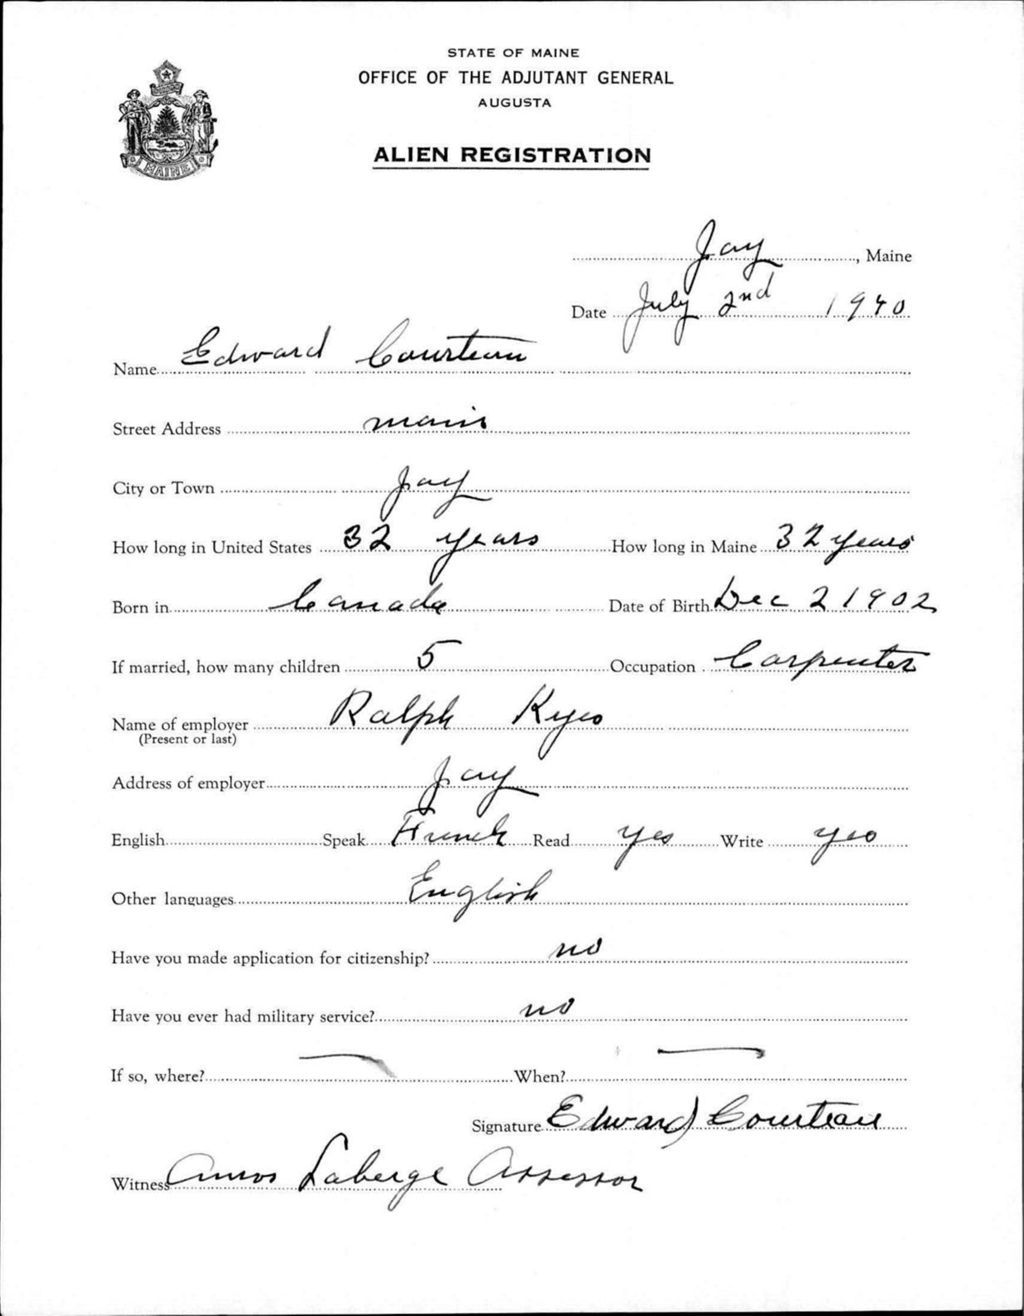 STATE OF MAINE
OFFICE OF THE ADJUTANT GENERAL
AUGUSTA
ALIEN REGISTRATION
MAINE
Jay, Maine
Date July 2nd 1940
Name Edward Courteau
Street Address main
City or Town Jay
How long in United States 32 years How long in Maine 32 years
Born in Canada Date of Birth Dec 2 1902
If married, how many children 5 Occupation Carpenter
Name of employer Ralph Keyes
(Present or last)
Address of employer Jay
English Speak French Read yes Write yes
Other languages English
Have you made application for citizenship? no
Have you ever had military service? no
If so, where? When?
Signature Edward Courteau
Witness Amos Laberge Assessor